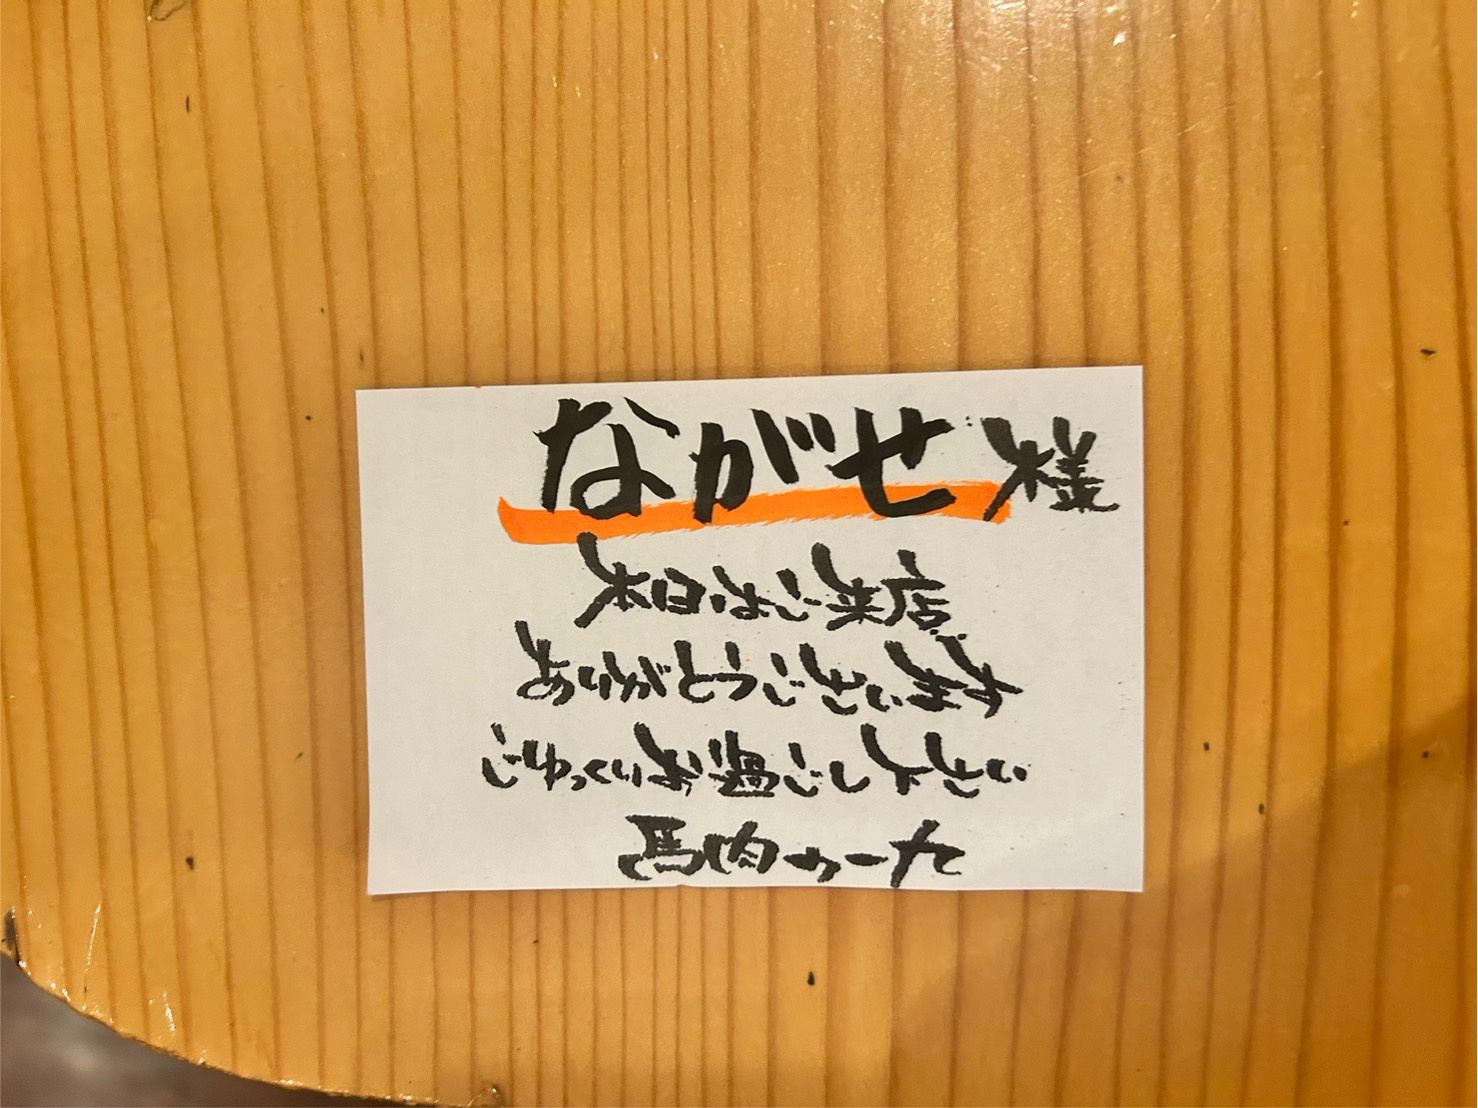 ながせ様
本日はご来店
ありがとうございます
ごゆっくりお過ごし下さい
馬肉のー九